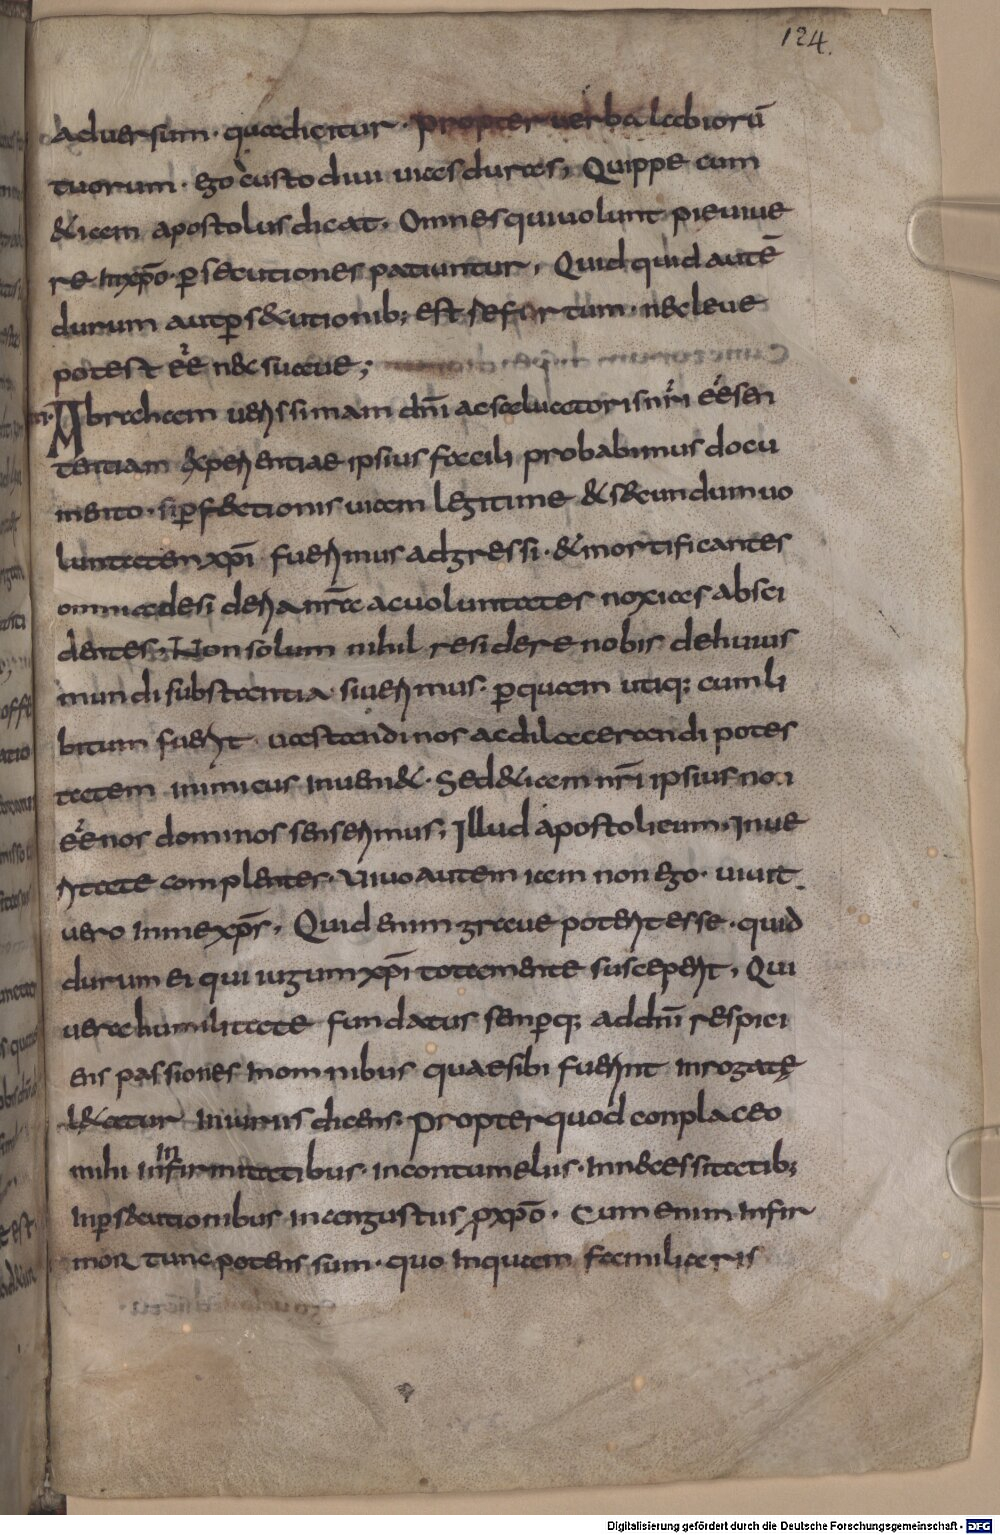 124.
aduersum · quaedicitur · propter uerba labiorū
tuorum · ego custodiui uias duras; Quippe cum
&iam apostolus dicat · Omnes qui uolunt pie uiue
re inxp̄o · p̱secutiones patiuntur, Quidquid autē
durum aut p̱s&utionib; est refertum · nec leue
potest eē nec suaue;
Abraham uerissimam dn̄i ac saluatoris nr̄i eē sen
tentiam experientiae ipsius facili probabimus docu
mento · si p̱fectionis uiam legitime & secundum uo
luntatem xp̄i fuerimus adgressi · & mortificantes
omnia desideria nr̄a ac uoluntates noxias absci
dentes · Non solum nihil residere nobis de huius
mundi substantia siuerimus · p̱ quam utiq; cum li
bitum fuerit uastandi nos ac dilacerandi potes
tatem inimicus inueni& · Sed &iam nr̄i ipsius non
eē nos dominos senserimus; Illud apostolicum in ue
ritate complentes · Viuo autem iam non ego · uiuit
uero in me xp̄s, Quid enim graue poterit esse · quid
durum ei qui iugum xp̄i tota mente susceperit, Qui
uera humilitate fundatus semp̱q; ad dn̄m respici
ens passiones in omnibus quae sibi fuerint inrogatę
l&atur iniuriis dicens · Propter quod conplaceo
mihi in infirmitatibus · in contumeliis · in necessitatib;
in p̱secutionibus in angustiis p̱ xp̄o · Cum enim infir
mor tunc potens sum · quo inquam familiaris
Digitalisierung gefördert durch die Deutsche Forschungsgemeinschaft - DFG